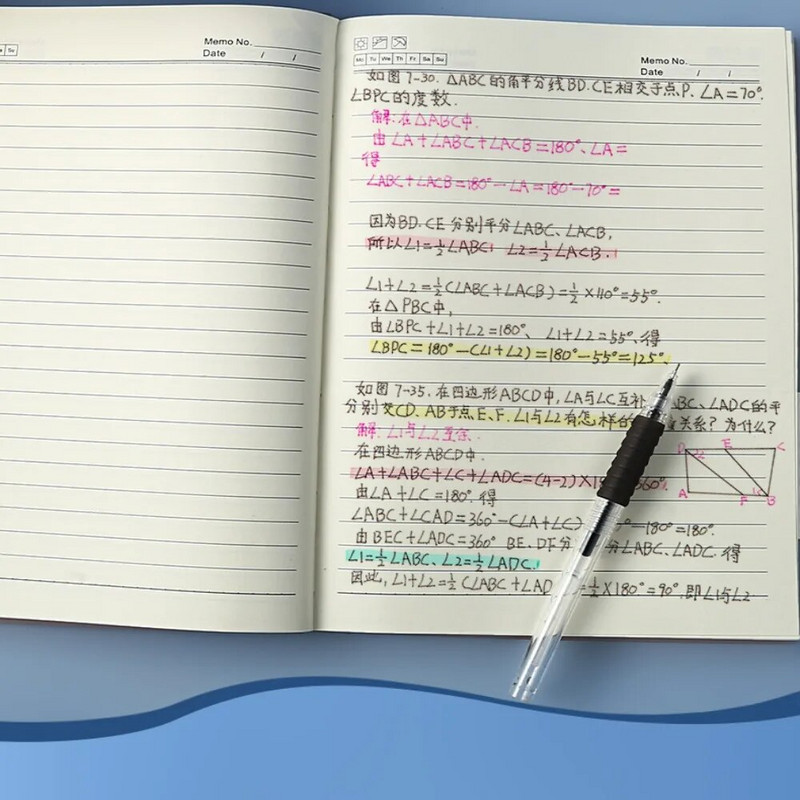 Su
Memo No.
Date / /
Mo Tu We Th Fr Sa Su
Memo No.
Date / /
如图7-30.△ABC的角平分线BD.CE相交于点P.∠A=70°.
∠BPC的度数.
解:在△ABC中.
由∠A+∠ABC+∠ACB=180°、∠A=
得
∠ABC+∠ACB=180°-∠A=180°-70°=
因为BD.CE分别平分∠ABC、∠ACB,
所以∠1=½∠ABC ∠2=½∠ACB.
∠1+∠2=½(∠ABC+∠ACB)=½×110°=55°.
在△PBC中,
由∠BPC+∠1+∠2=180°、∠1+∠2=55°.得
∠BPC=180°-(∠1+∠2)=180°-55°=125°.
如图7-35.在四边形ABCD中,∠A与∠C互补 BC、∠ADC的平
分别交CD.AB于点E、F.∠1与∠2有怎样的 关系?为什么?
解:∠1与∠2互余.
在四边形ABCD中.
∠A+∠ABC+∠C+∠ADC=(4-2)×18 360°.
由∠A+∠C=180°.得
∠ABC+∠CAD=360°-(∠A+∠C) °-180°=180°.
由BEC+∠ADC=360° BE、DF分 分∠ABC、∠ADC.得
∠1=½∠ABC、∠2=½∠ADC.
因此,∠1+∠2=½(∠ABC+∠AD =½×180°=90°.即∠1与∠2
D E C
A F B